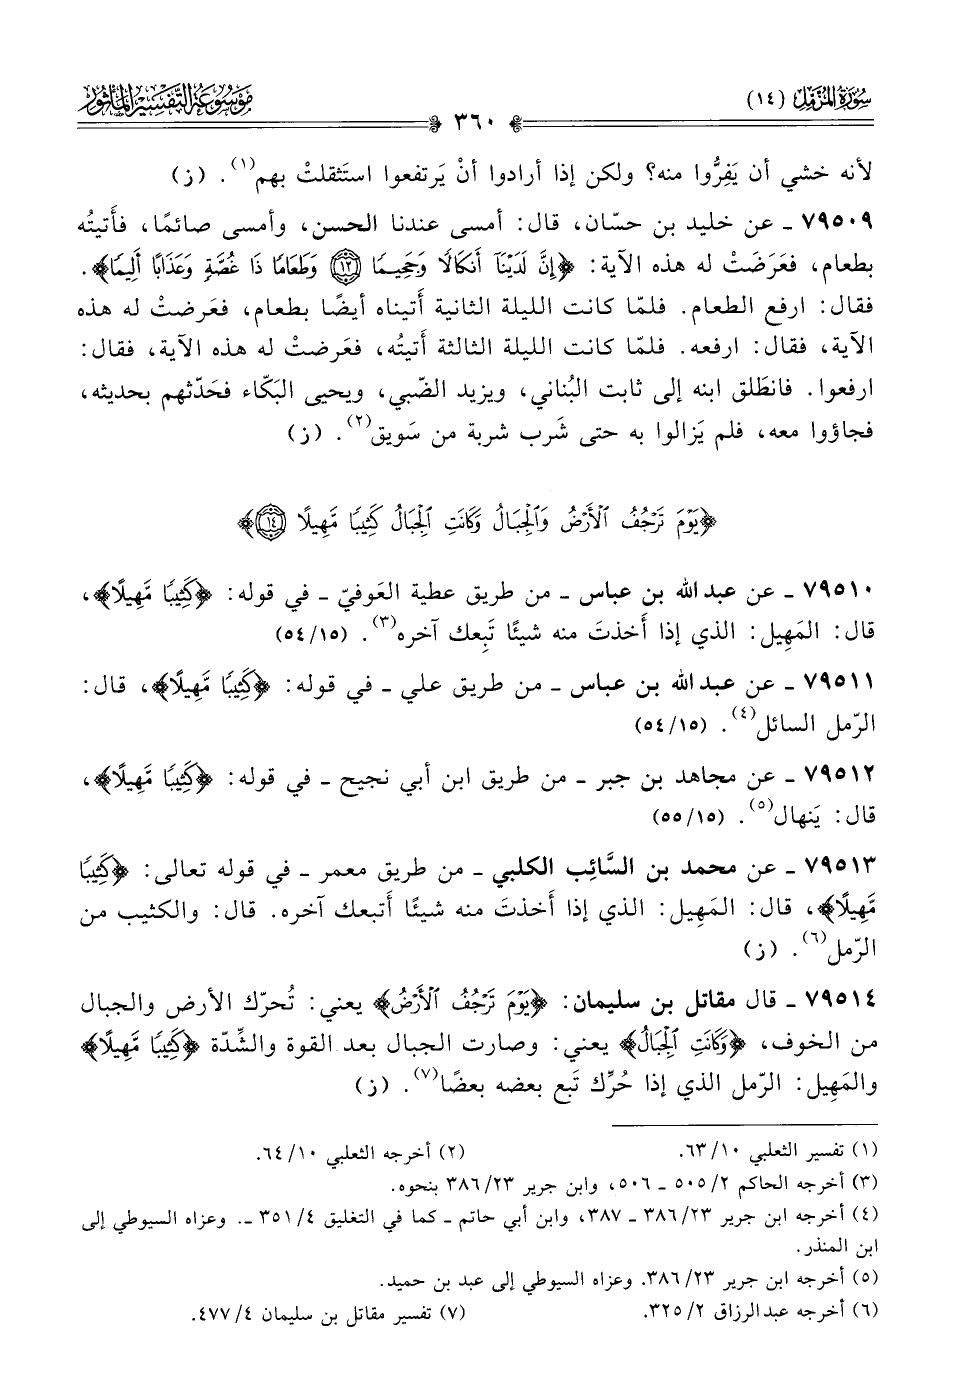 سورة المزمل (١٤)
موسوعة التفسير المأثور
٣٦٠
لأنه خشي أن يَفِرُّوا منه؟ ولكن إذا أرادوا أنْ يَرتفعوا استَثقلتْ بهم(١). (ز)
٧٩٥٠٩ ـ عن خليد بن حسّان، قال: أمسى عندنا الحسن، وأمسى صائمًا، فأَتيتُه
بطعام، فعَرَضَتْ له هذه الآية: ﴿إِنَّ لَدَيْنَآ أَنكَالًا وَجَحِيمًا ١٢ وَطَعَامًا ذَا غُصَّةٍ وَعَذَابًا أَلِيمًا﴾.
فقال: ارفع الطعام. فلمّا كانت الليلة الثانية أَتيناه أيضًا بطعام، فعَرضتْ له هذه
الآية، فقال: ارفعه. فلمّا كانت الليلة الثالثة أَتيتُه، فعَرضتْ له هذه الآية، فقال:
ارفعوا. فانطَلق ابنه إلى ثابت البُناني، ويزيد الضّبي، ويحيى البَكّاء فحَدّثهم بحديثه،
فجاؤوا معه، فلم يَزالوا به حتى شَرب شربة من سَويق(٢). (ز)
﴿يَوْمَ تَرْجُفُ ٱلْأَرْضُ وَٱلْجِبَالُ وَكَانَتِ ٱلْجِبَالُ كَثِيبًا مَّهِيلًا ١٤﴾
٧٩٥١٠ ـ عن عبد الله بن عباس ـ من طريق عطية العَوفيّ ـ في قوله: ﴿كَثِيبًا مَّهِيلًا﴾،
قال: المَهِيل: الذي إذا أَخذتَ منه شيئًا تَبِعك آخره(٣). (٥٤/١٥)
٧٩٥١١ ـ عن عبد الله بن عباس ـ من طريق علي ـ في قوله: ﴿كَثِيبًا مَّهِيلًا﴾، قال:
الرّمل السائل(٤). (٥٤/١٥)
٧٩٥١٢ ـ عن مجاهد بن جبر ـ من طريق ابن أبي نجيح ـ في قوله: ﴿كَثِيبًا مَّهِيلًا﴾،
قال: يَنهال(٥). (٥٥/١٥)
٧٩٥١٣ ـ عن محمد بن السَّائِب الكلبي ـ من طريق معمر ـ في قوله تعالى: ﴿كَثِيبًا
مَّهِيلًا﴾، قال: المَهِيل: الذي إذا أَخذتَ منه شيئًا أَتبعك آخره. قال: والكثيب من
الرّمل(٦). (ز)
٧٩٥١٤ ـ قال مقاتل بن سليمان: ﴿يَوْمَ تَرْجُفُ ٱلْأَرْضُ﴾ يعني: تُحرّك الأرض والجبال
من الخوف، ﴿وَكَانَتِ ٱلْجِبَالُ﴾ يعني: وصارت الجبال بعد القوة والشِّدّة ﴿كَثِيبًا مَّهِيلًا﴾
والمَهِيل: الرّمل الذي إذا حُرِّك تَبع بعضه بعضًا(٧). (ز)
(١) تفسير الثعلبي ٦٣/١٠.
(٢) أخرجه الثعلبي ٦٤/١٠.
(٣) أخرجه الحاكم ٥٠٥/٢ ـ ٥٠٦، وابن جرير ٣٨٦/٢٣ بنحوه.
(٤) أخرجه ابن جرير ٣٨٦/٢٣ ـ ٣٨٧، وابن أبي حاتم ـ كما في التغليق ٣٥١/٤ ـ. وعزاه السيوطي إلى
ابن المنذر.
(٥) أخرجه ابن جرير ٣٨٦/٢٣. وعزاه السيوطي إلى عبد بن حميد.
(٦) أخرجه عبد الرزاق ٣٢٥/٢.
(٧) تفسير مقاتل بن سليمان ٤٧٧/٤.